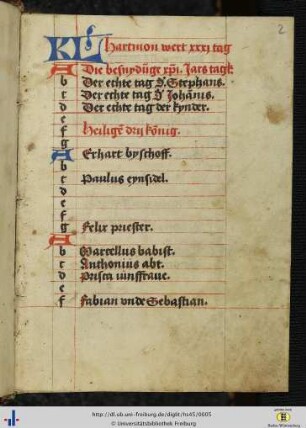 2
KL Hartmon wert xxxi tag
A Die besnydūge xp̄i. Jars tagk
b Der echte tag S. Stephans.
c Der echte tag S' Johānis.
d Der echte tag der kynder.
e
f Heiligē drij kōnig.
g
A Erhart byschoff.
b
c Paulus eynsidel.
d
e
f
g Felix priester.
A
b Marcellus babist.
c Anthonius abt.
d Prisca iunffraue.
e
f Fabian vnde Sebastian.
http://dl.ub.uni-freiburg.de/diglit/hs45/0005
© Universitätsbibliothek Freiburg